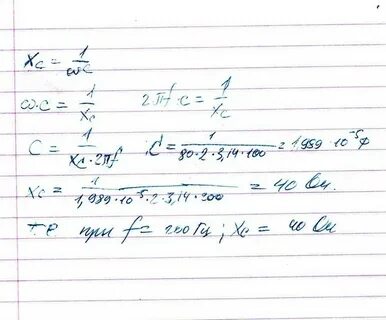 Xc = 1/ωc
ω·c = 1/Xc   2πf·c = 1/Xc
C = 1/(Xc·2πf)   C = 1/(80·2·3,14·100) = 1,989·10⁻⁵ Ф
Xc = 1/(1,989·10⁻⁵·2·3,14·200) = 40 Ом.
т.е при f = 200 Гц; Xc = 40 Ом